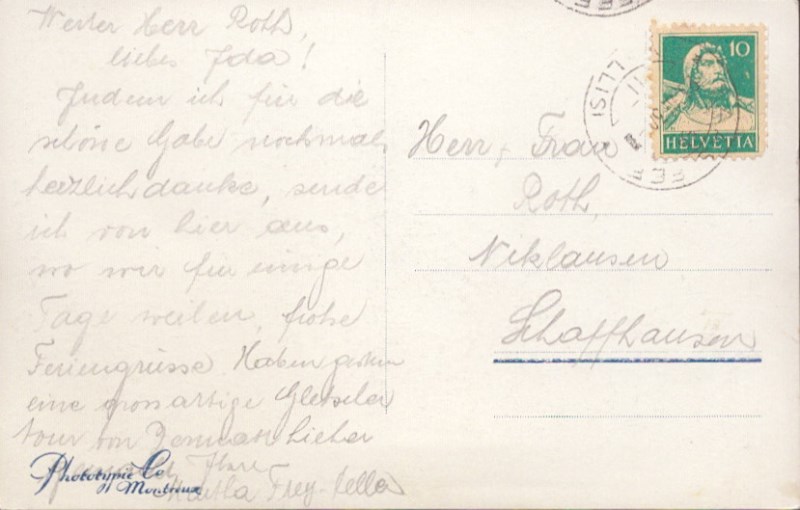 Werter Herr Roth,
liebes Ida!
Indem ich für die
schöne Gabe nochmals
herzlich danke, sende
ich von hier aus,
wo wir für einige
Tage weilen, frohe
Feriengrüsse. Haben gestern
eine grossartige Gletscher
tour von Zermatt hieher
gemacht. Ihre
Frey-
Phototypie Co
Montreux
10
HELVETIA
Herr, Frau
Roth,
Niklausen
Schaffhausen